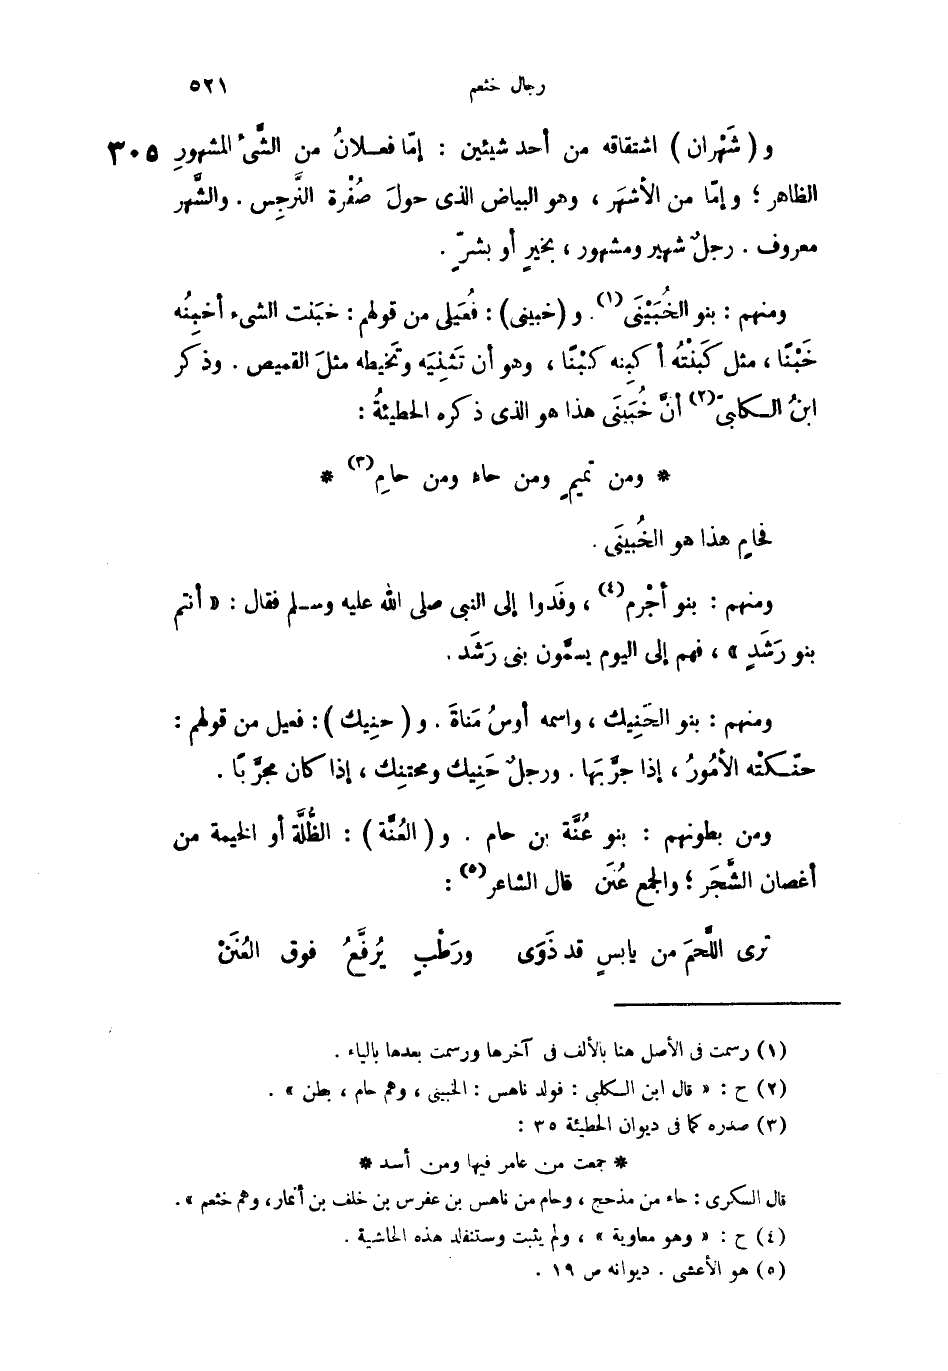 رجال خثعم ٥٢١
و ( شَهْران ) اشتقاقه من أحد شيئين : إمّا فعــلانُ من الشَّىْء المشهورِ ٣٠٥
الظاهر ؛ وإمّا من الأشهَر ، وهو البياض الذى حولَ صُفْرة النَّرجِس . والشَّهر
معروف . رجلٌ شهير ومشهور ، بخيرٍ أو بشرّ .
ومنهم : بنو الخُبَيْنَى(١) . و (خبينى) : فُعَيلى من قولهم : خبَنت الشىء أخبِنُه
خَبْنًا ، مثل كَبَنْتُه أكبِنه كبْنًا ، وهو أن تَثنِيَه وتَخيطه مثلَ القميص . وذكر
ابنُ الـكلبىّ(٢) أنَّ خُبَينَى هذا هو الذى ذكره الحطيئةُ :
* ومن تميمٍ ومن حاء ومن حامِ(٣) *
فحامٍ هذا هو الخُبينَى .
ومنهم : بنو أجْرم(٤) ، وفَدوا إلى النبى صلى الله عليه وسـلم فقال : « أنتم
بنو رَشَدٍ » ، فهم إلى اليوم يسمَّون بنى رَشَد .
ومنهم : بنو الحَنِيك ، واسمه أوسُ مَناةَ . و ( حنِيك ) : فعيل من قولهم :
حنّـكتْه الأمُورُ ، إذا جرَّبَها . ورجلٌ حَنِيك ومحتنِك ، إذا كان مجرَّبًا .
ومن بطونهم : بنو عُنَّة بن حام . و ( العُنَّة ) : الظُّلَّة أو الخيمة من
أغصان الشَّجَر ؛ والجمع عُنَن قال الشاعر(٥) :
ترى اللَّحمَ من يابسٍ قد ذَوَى ورَطْبٍ يُرفَّعُ فوق العُنَنْ
(١) رسمت فى الأصل هنا بالألف فى آخرها ورسمت بعدها بالياء .
(٢) ح : « قال ابن الـكلبى : فولد ناهس : الخبينى ، وهم حام ، بطن » .
(٣) صدره كما فى ديوان الحطيئة ٣٥ :
* جمعت من عامر فيها ومن أسد *
قال السكرى : حاء من مذحج ، وحام من ناهس بن عفرس بن خلف بن أنمار ، وهم خثعم » .
(٤) ح : « وهو معاوية » ، ولم يثبت وستنفلد هذه الحاشية .
(٥) هو الأعشى . ديوانه ص ١٩ .